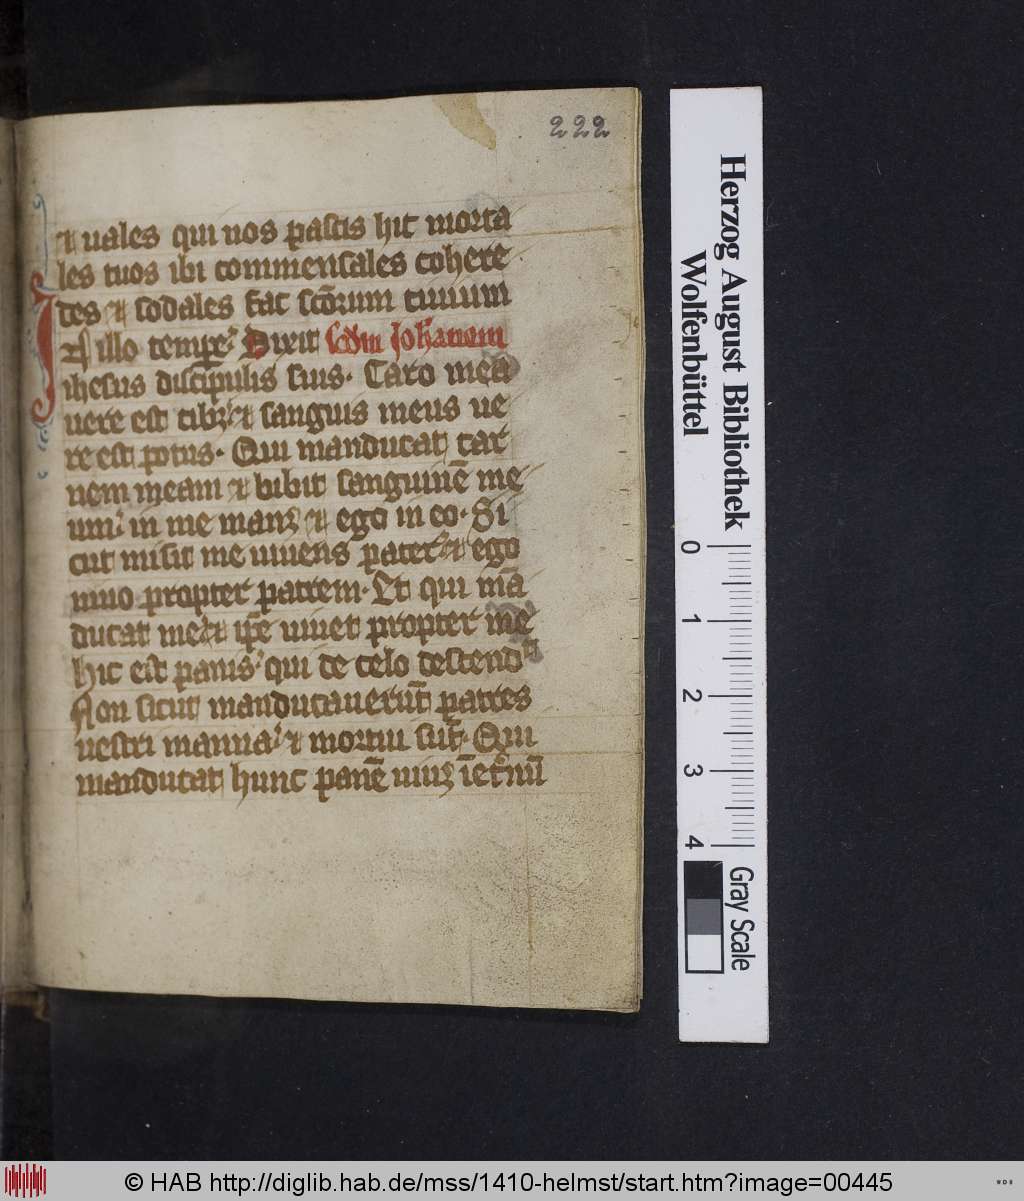 222
⁊ uales qui nos pascis hic morta
les tuos ibi commensales cohere
des ⁊ sodales fac sc̄orum ciuium
In illo tempꝛe Dixit scd̄m Joha̅nem
ihesus discipulis suis. Caro mea
uere est cibꝫ ⁊ sanguis meus ue
re est potus. Qui manducat car
nem meam ⁊ bibit sanguinē me
um in me manꝫ ⁊ ego in eo. Si
cut misit me uiuens pater ⁊ ego
uiuo propter patrem. Et qui mā
ducat me ⁊ ip̄e uiuet propter me
hic est panis qui de celo descendit
Non sicut manducauerūt patres
uestri manna ⁊ mortui sūt. Qui
manducat hunc panē uiuꝫ ī et̄nū
Herzog August Bibliothek
Wolfenbüttel
0 1 2 3 4
Gray Scale
© HAB http://diglib.hab.de/mss/1410-helmst/start.htm?image=00445